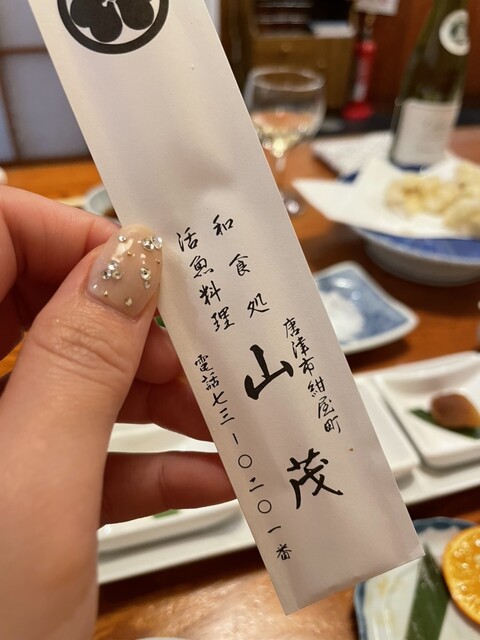 唐津市紺屋町
和食処
活魚料理
山茂
電話七三ー〇二〇一番